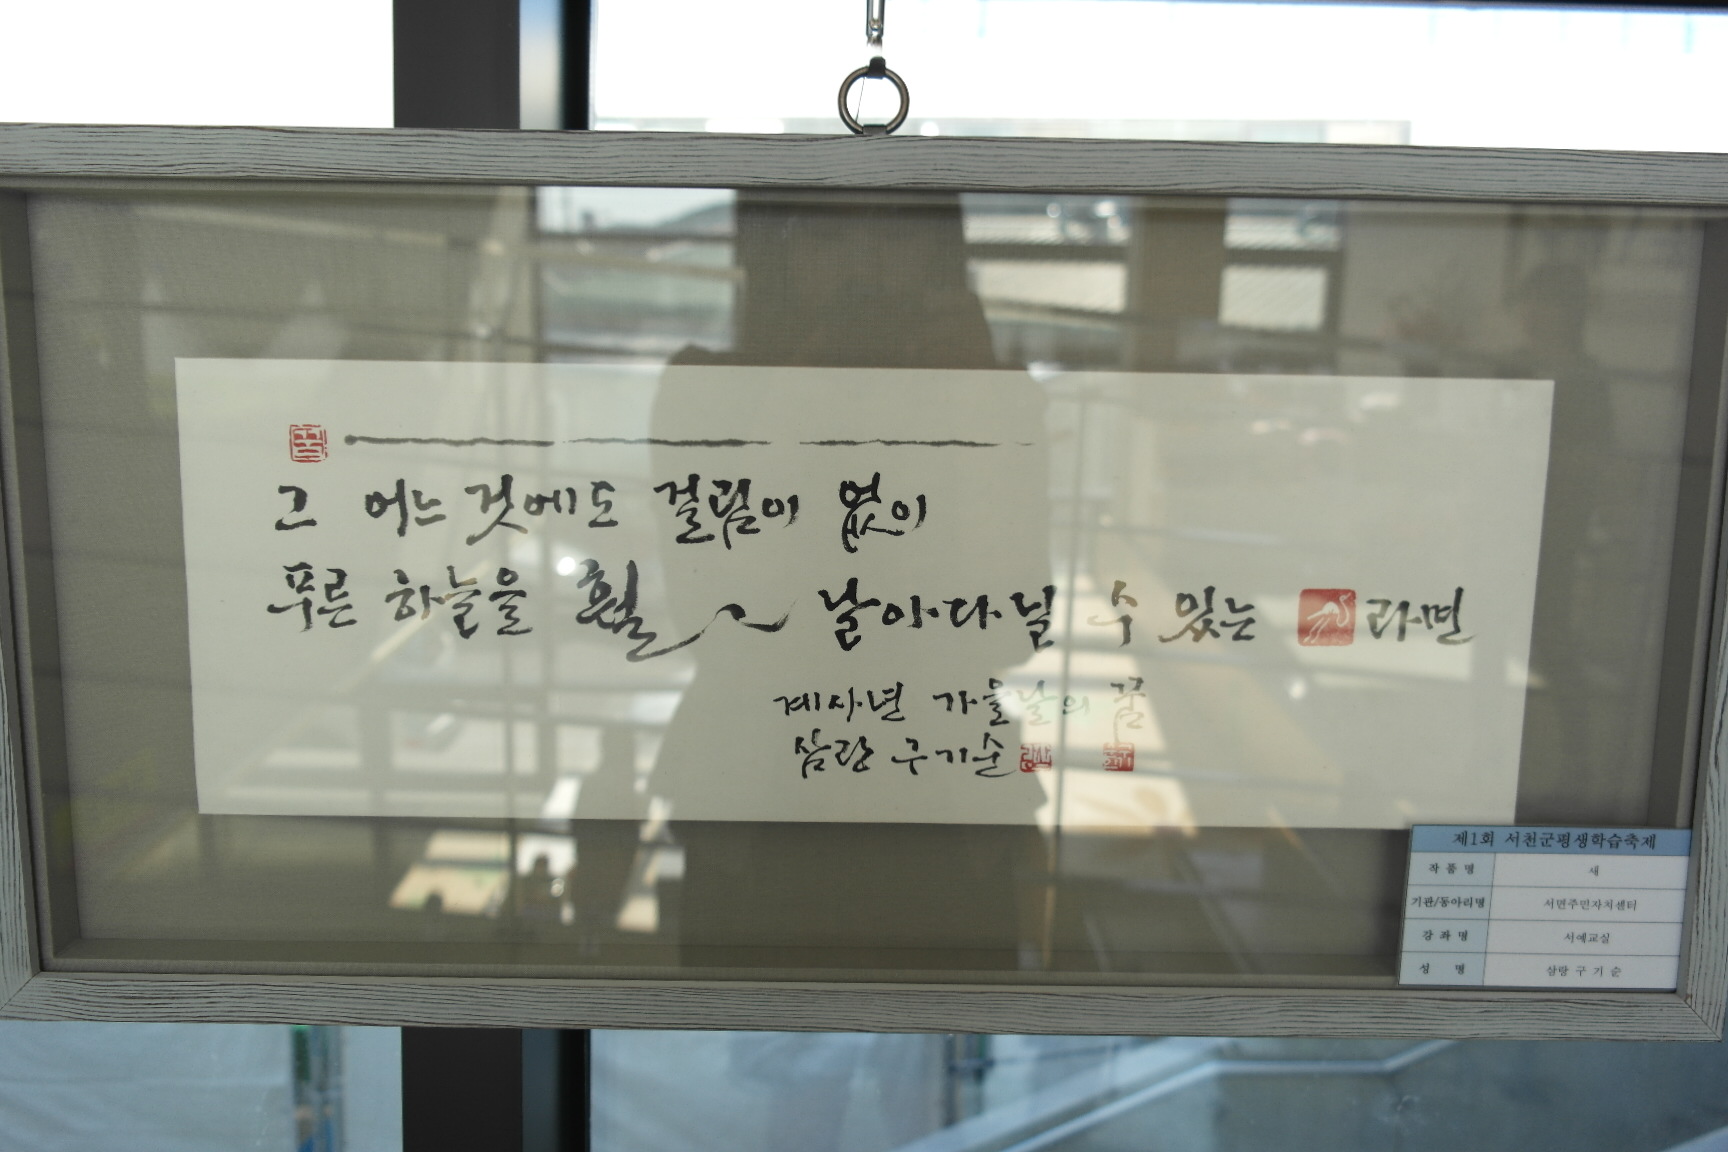 그 어느 것에도 걸림이 없이
푸른 하늘을 훨 날아다닐 수 있는 라면
계사년 가을날의 꿈
삼랑 구기순
제1회 서천군평생학습축제
작품명 새
기관/동아리명 서면주민자치센터
강좌명 서예교실
성 명 삼랑 구 기 순